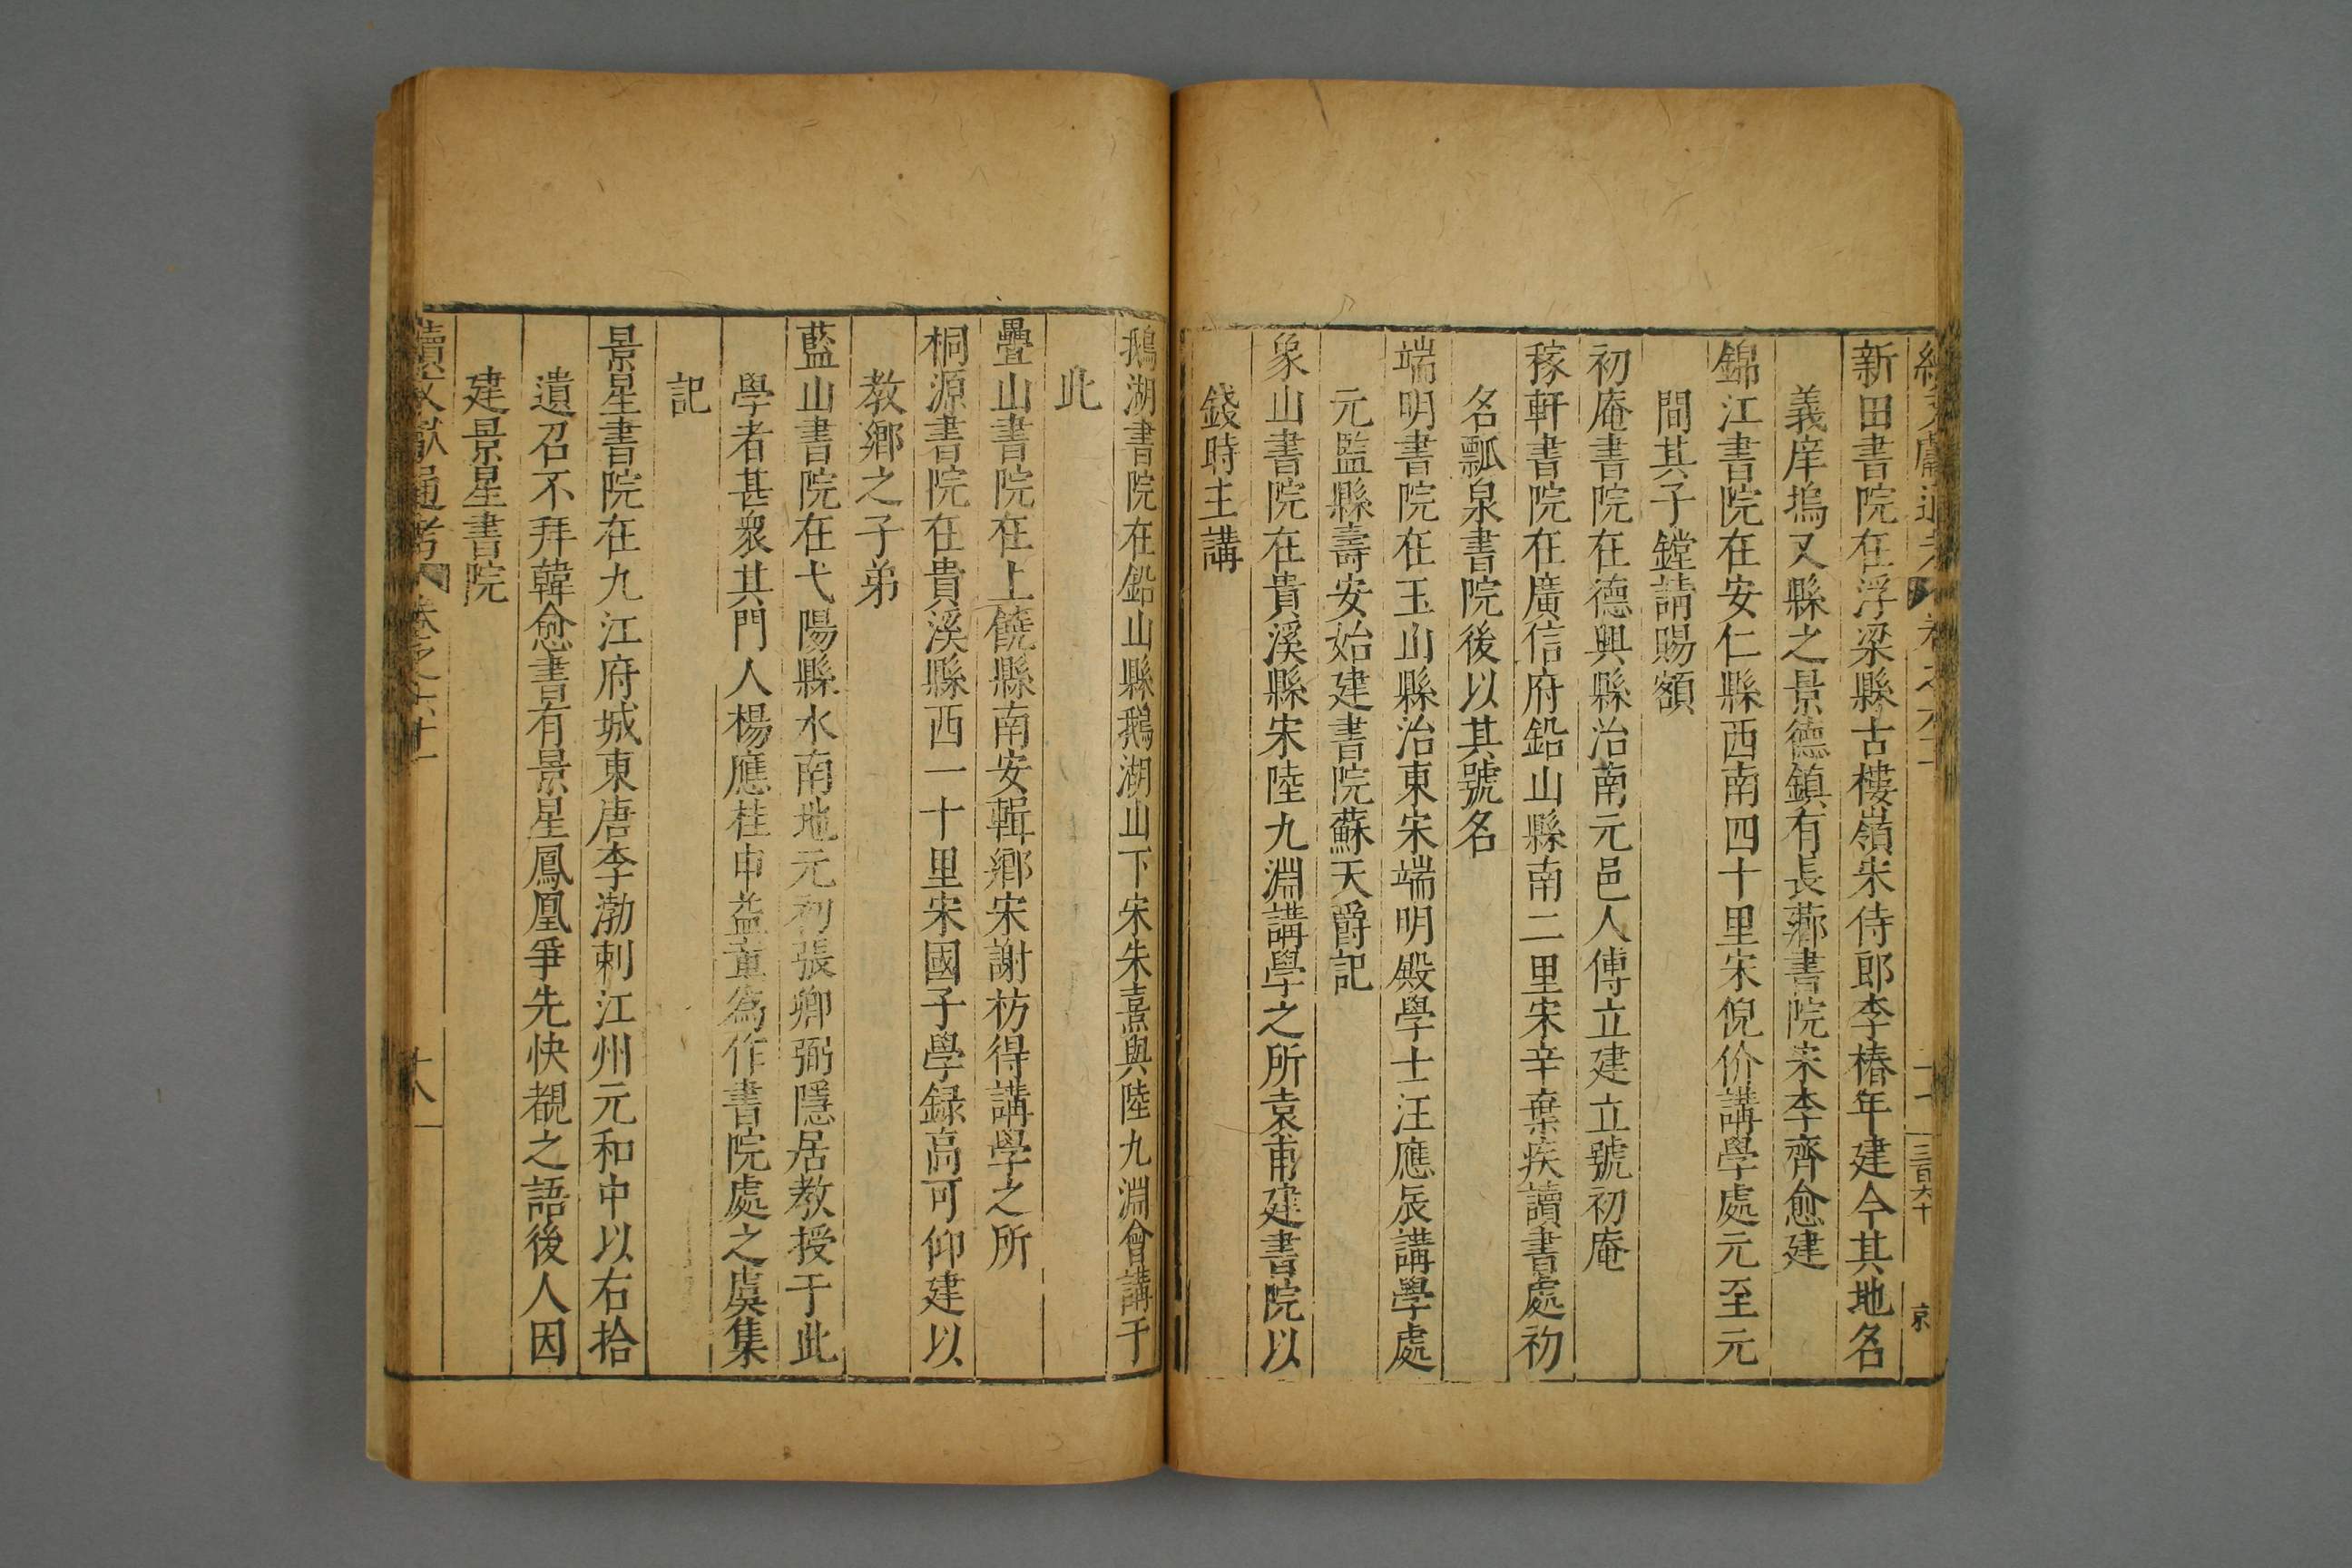 新田書院在浮梁縣古樓嶺宋侍郎李椿年建今其地名
義庠塢又縣之景德鎮有長薌書院宋李齊愈建
錦江書院在安仁縣西南四十里宋倪价講學處元至元
間其子鏜請賜額
初庵書院在德興縣治南元邑人傅立建立號初庵
稼軒書院在廣信府鉛山縣南二里宋辛棄疾讀書處初
名瓢泉書院後以其號名
端明書院在玉山縣治東宋端明殿學士汪應辰講學處
元監縣壽安始建書院蘇天爵記
象山書院在貴溪縣宋陸九淵講學之所袁甫建書院以
錢時主講
鵝湖書院在鉛山縣鵝湖山下宋朱熹與陸九淵會講于
此
疊山書院在上饒縣南安輯鄉宋謝枋得講學之所
桐源書院在貴溪縣西一十里宋國子學録高可仰建以
教鄉之子弟
藍山書院在弋陽縣水南地元初張卿弼隱居教授于此
學者甚衆其門人楊應桂申益章為作書院處之虞集
記
景星書院在九江府城東唐李渤刺江州元和中以右拾
遺召不拜韓愈書有景星鳳凰爭先快覩之語後人因
建景星書院
續文獻通考 卷之六十一 十八